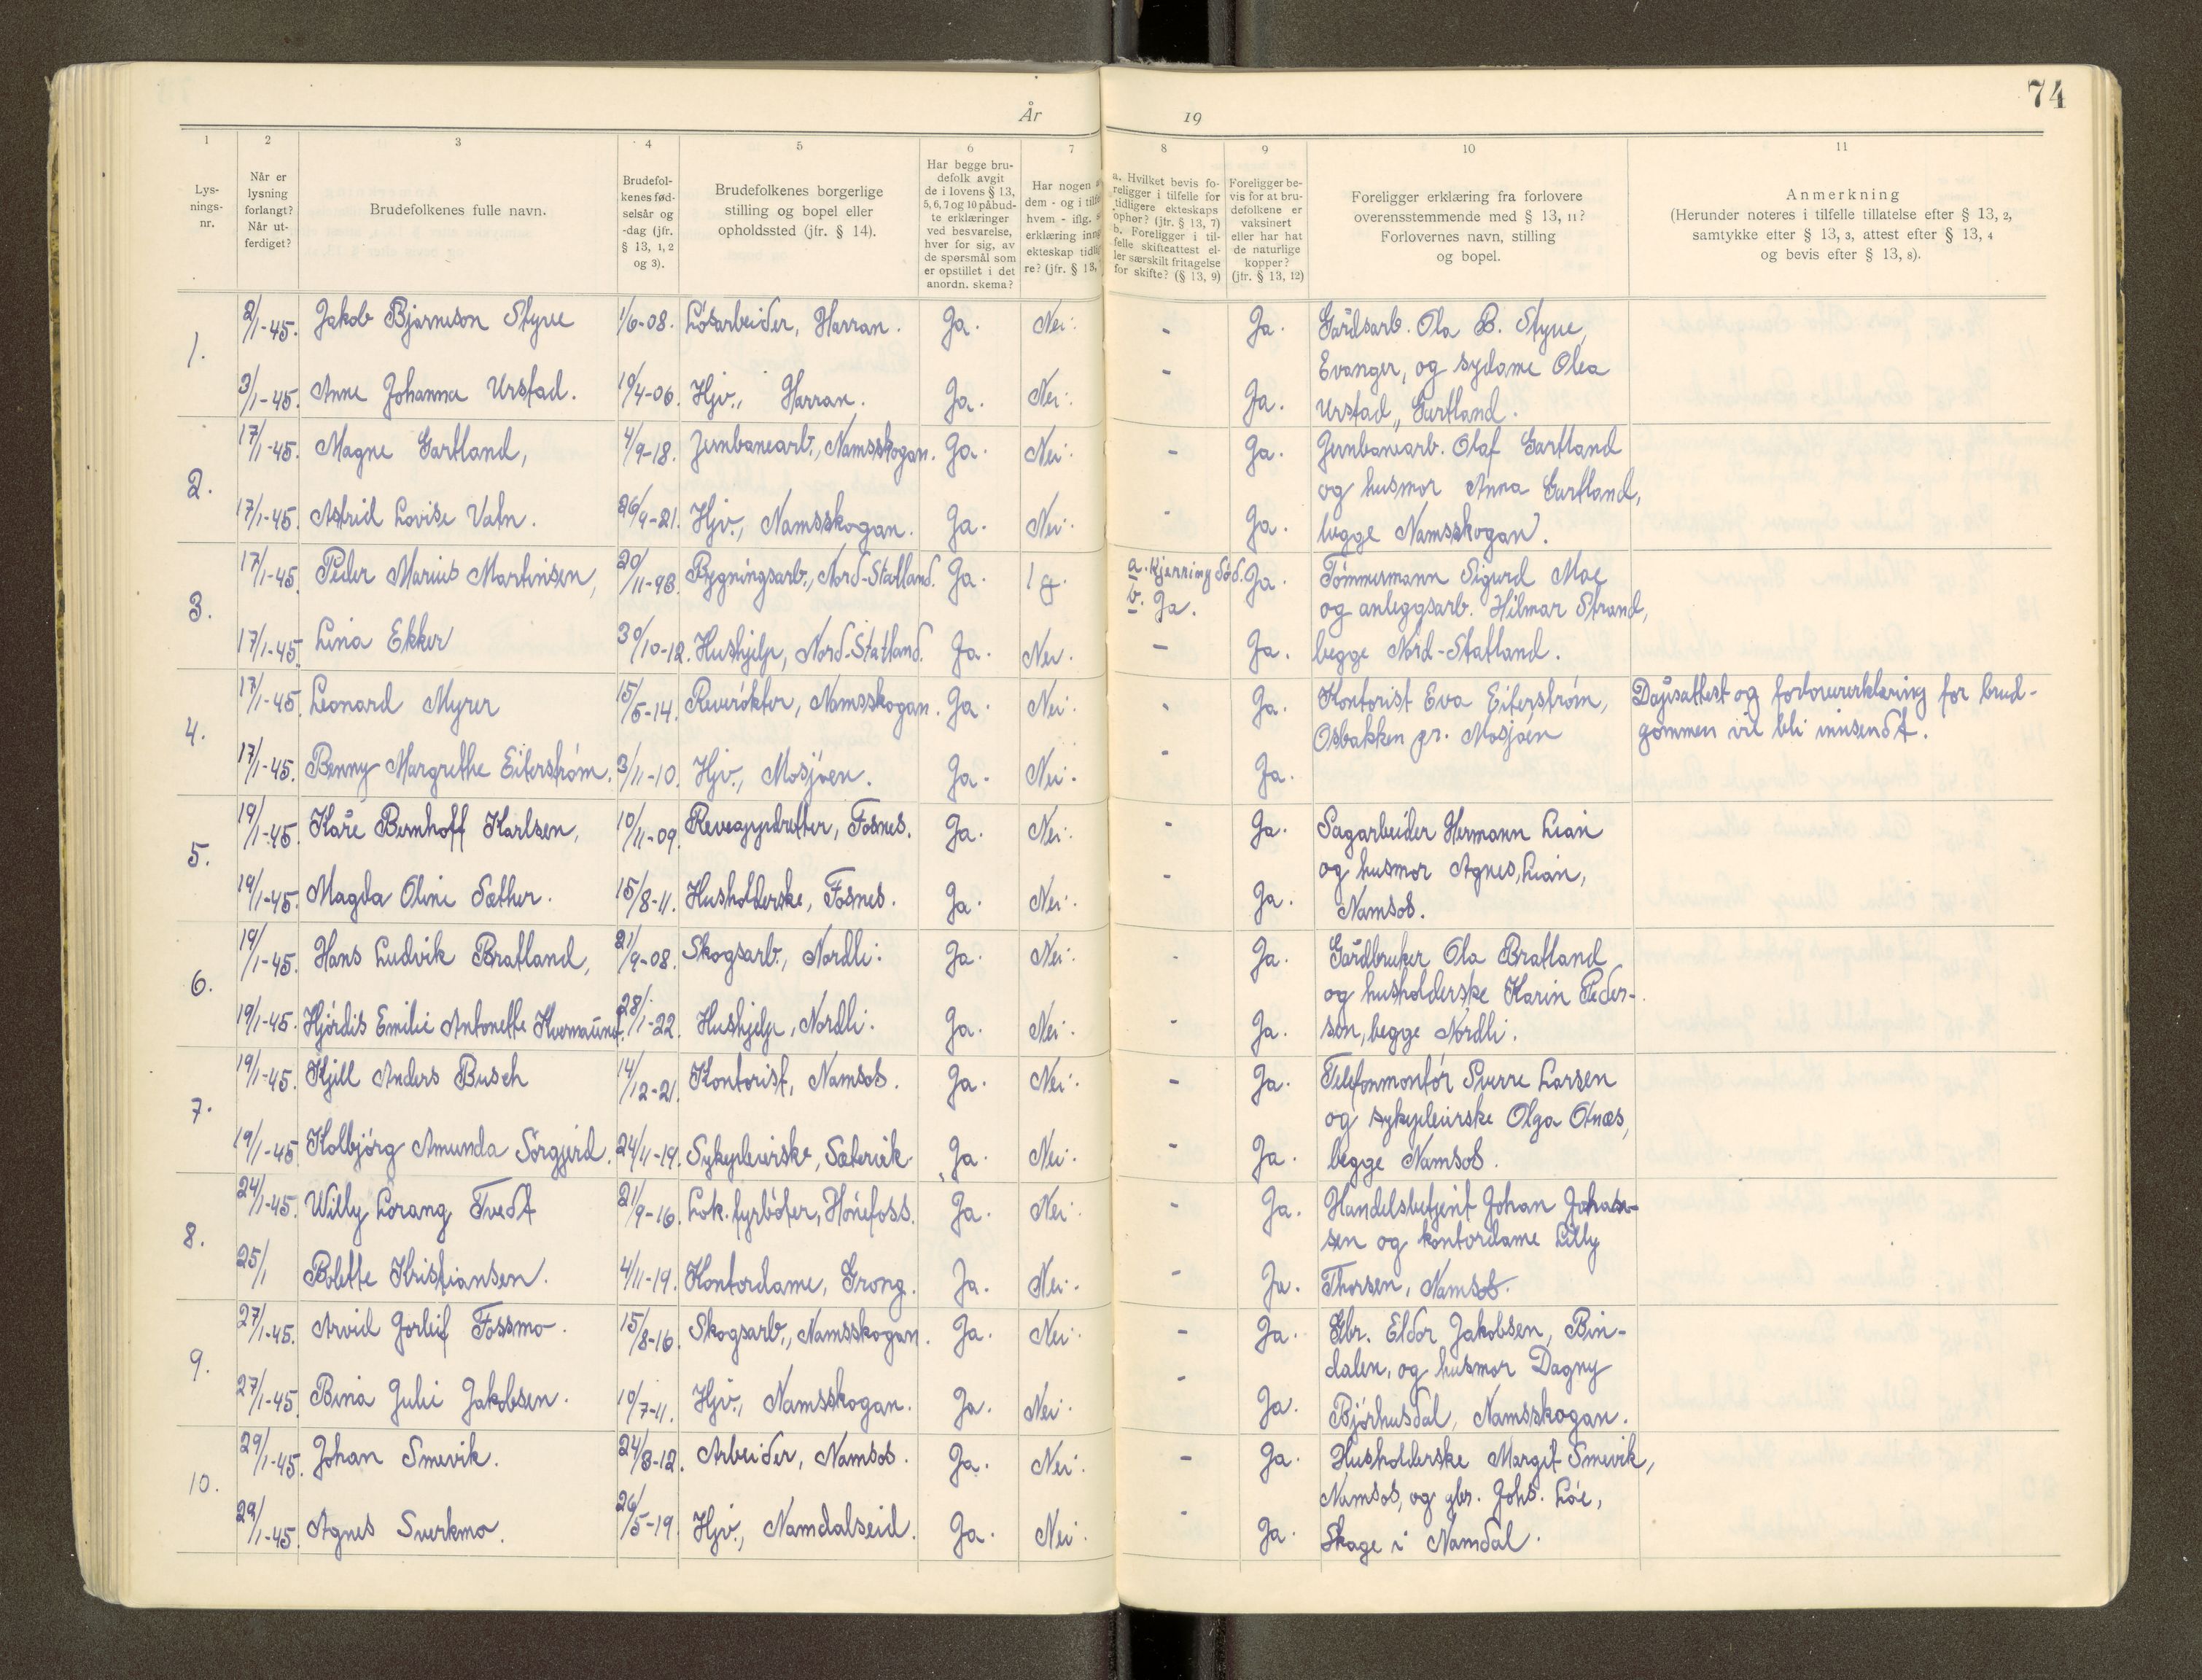 74
År 19
1 2 3 4 5 6 7 8 9 10 11
Lys-
nings-
nr.
Når er
lysning
forlangt?
Når ut-
ferdiget?
Brudefolkenes fulle navn.
Brudefol-
kenes fød-
selsår og
-dag (jfr.
§ 13, 1, 2
og 3).
Brudefolkenes borgerlige
stilling og bopel eller
opholdssted (jfr. § 14).
Har begge bru-
defolk avgit
de i lovens § 13,
5, 6, 7 og 10 påbud-
te erklæringer
ved besvarelse,
hver for sig, av
de spørsmål som
er opstillet i det
anordn. skema?
Har nogen
dem - og i tilfe
hvem - iflg.
erklæring inng
ekteskap tidlig
re? (jfr. § 13,
a. Hvilket bevis fo-
religger i tilfelle for
tidligere ekteskaps
ophør? (jfr. § 13, 7)
b. Foreligger i til-
felle skifteattest el-
ler særskilt fritagelse
for skifte? (§ 13, 9)
Foreligger be-
vis for at bru-
defolkene er
vaksinert
eller har hat
de naturlige
kopper?
(jfr. § 13, 12)
Foreligger erklæring fra forlovere
overensstemmende med § 13, 11?
Forlovernes navn, stilling
og bopel.
Anmerkning
(Herunder noteres i tilfelle tillatelse efter § 13, 2,
samtykke efter § 13, 3, attest efter § 13, 4
og bevis efter § 13, 8).
1.
2/1-45. Jakob Bjarneson Styve 1/6-08. Løsarbeider, Harran. Ja. Nei. - Ja. Gårdsarb. Ola B. Styve,
Evanger, og sydame Olea
3/1-45. Anne Johanna Urstad. 19/4-06. Hjv., Harran. Ja. Nei. - Ja. Urstad, Gartland.
2.
17/1-45. Magne Gartland, 4/9-18. Jernbanearb., Namsskogan. Ja. Nei. - Ja. Jernbanearb. Olaf Gartland
og husmor Anna Gartland,
17/1-45. Astrid Lovise Vatn. 26/9-21. Hjv., Namsskogan. Ja. Nei. - Ja. begge Namsskogan.
3.
17/1-45. Peder Marius Martinsen, 20/11-93. Bygningsarb., Nord-Statland. Ja. 1 g. a. Kjerring død. Ja. Tømmermann Sigurd Moe
b. Ja. og anleggsarb. Hilmar Strand,
17/1-45. Lina Ekker 30/10-12. Hushjelp, Nord-Statland. Ja. Nei. - Ja. begge Nord-Statland.
4.
17/1-45. Leonard Myrer 15/5-14. Reverøkter, Namsskogan. Ja. Nei. - Ja. Kontorist Eva Eiterstrøm, Dåpsattest og forlovererklæring for brud-
Osbakken pr. Mosjøen gommen vil bli innsendt.
17/1-45. Benny Margrethe Eiterstrøm. 3/11-10. Hjv., Mosjøen. Ja. Nei. - Ja.
5.
19/1-45. Kåre Bernhoff Karlsen, 10/11-09. Reveoppdretter, Fosnes. Ja. Nei. - Ja. Sagarbeider Hermann Lian
og husmor Agnes Lian,
19/1-45. Magda Oline Sæther. 15/8-11. Husholderske, Fosnes. Ja. Nei. - Ja. Namsos.
6.
19/1-45. Hans Ludvik Bratland, 21/9-08. Skogsarb., Nordli. Ja. Nei. - Ja. Gårdbruker Ola Bratland
og husholderske Karin Peder-
19/1-45. Hjördis Emilie Antonette Kvernaunet. 28/1-22. Hushjelp, Nordli. Ja. Nei. - Ja. sen, begge Nordli.
7.
19/1-45. Kjell Anders Busch 14/12-21. Kontorist, Namsos. Ja. Nei. - Ja. Telefonmontør Sverre Larsen
og sykepleierske Olga Otnæs,
19/1-45 Kolbjørg Amunda Sørgjerd. 24/11-19. Sykepleierske, Sætervik Ja. Nei. - Ja. begge Namsos.
8.
24/1-45. Willy Lorang Tvedt 21/9-16. Lok.fyrbøter, Hønefoss. Ja. Nei. - Ja. Handelsbetjent Johan Johan-
sen og kontordame Lilly
25/1 Bolette Kristiansen. 4/11-19. Kontordame, Grong. Ja. Nei. - Ja. Thorsen, Namsos.
9.
27/1-45. Arvid Gorleif Fossmo. 15/8-16. Skogsarb., Namsskogan. Ja. Nei. - Ja. Gbr. Eldor Jakobsen, Bin-
dalen, og husmor Dagny
27/1-45 Bina Julie Jakobsen. 10/7-11. Hjv., Namsskogan. Ja. Nei. - Ja. Bjørhusdal, Namsskogan.
10.
29/1-45. Johan Smevik. 24/3-12. Arbeider, Namsos. Ja. Nei. - Ja. Husholderske Margit Smevik,
Namsos, og gbr. Johs. Løe,
29/1-45 Agnes Sverkmo. 26/5-19. Hjv., Namdalseid. Ja. Nei. - Ja. Skage i Namdal.